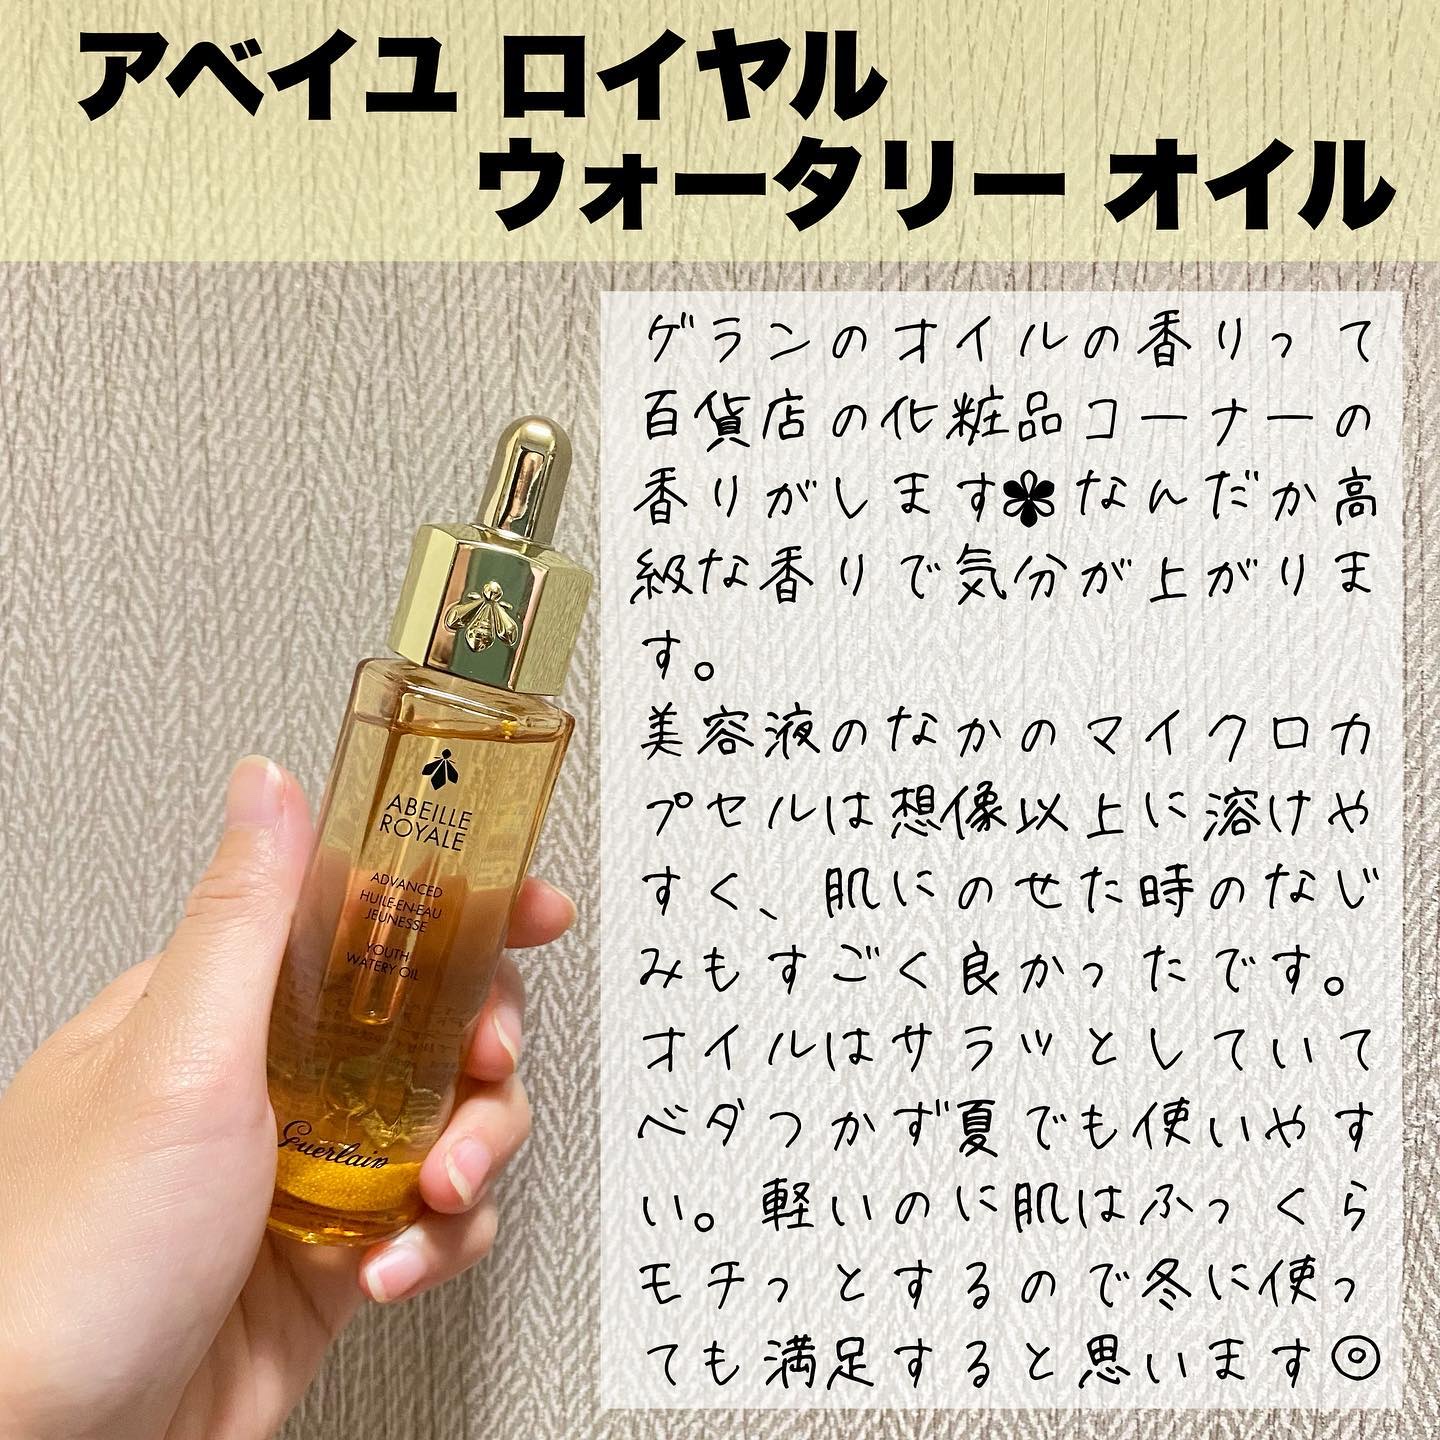 アベイユ ロイヤル
ウォータリー オイル
ゲランのオイルの香りって
百貨店の化粧品コーナーの
香りがします✽なんだか高
級な香りで気分が上がりま
す。
美容液のなかのマイクロカ
プセルは想像以上に溶けや
すく、肌にのせた時のなじ
みもすごく良かったです。
オイルはサラッとしていて
ベダつかず夏でも使いやす
い。軽いのに肌はふっくら
モチっとするので冬に使っ
ても満足すると思います◎
ABEILLE
ROYALE
ADVANCED
HUILE-EN-EAU
JEUNESSE
YOUTH
WATERY OIL
Guerlain